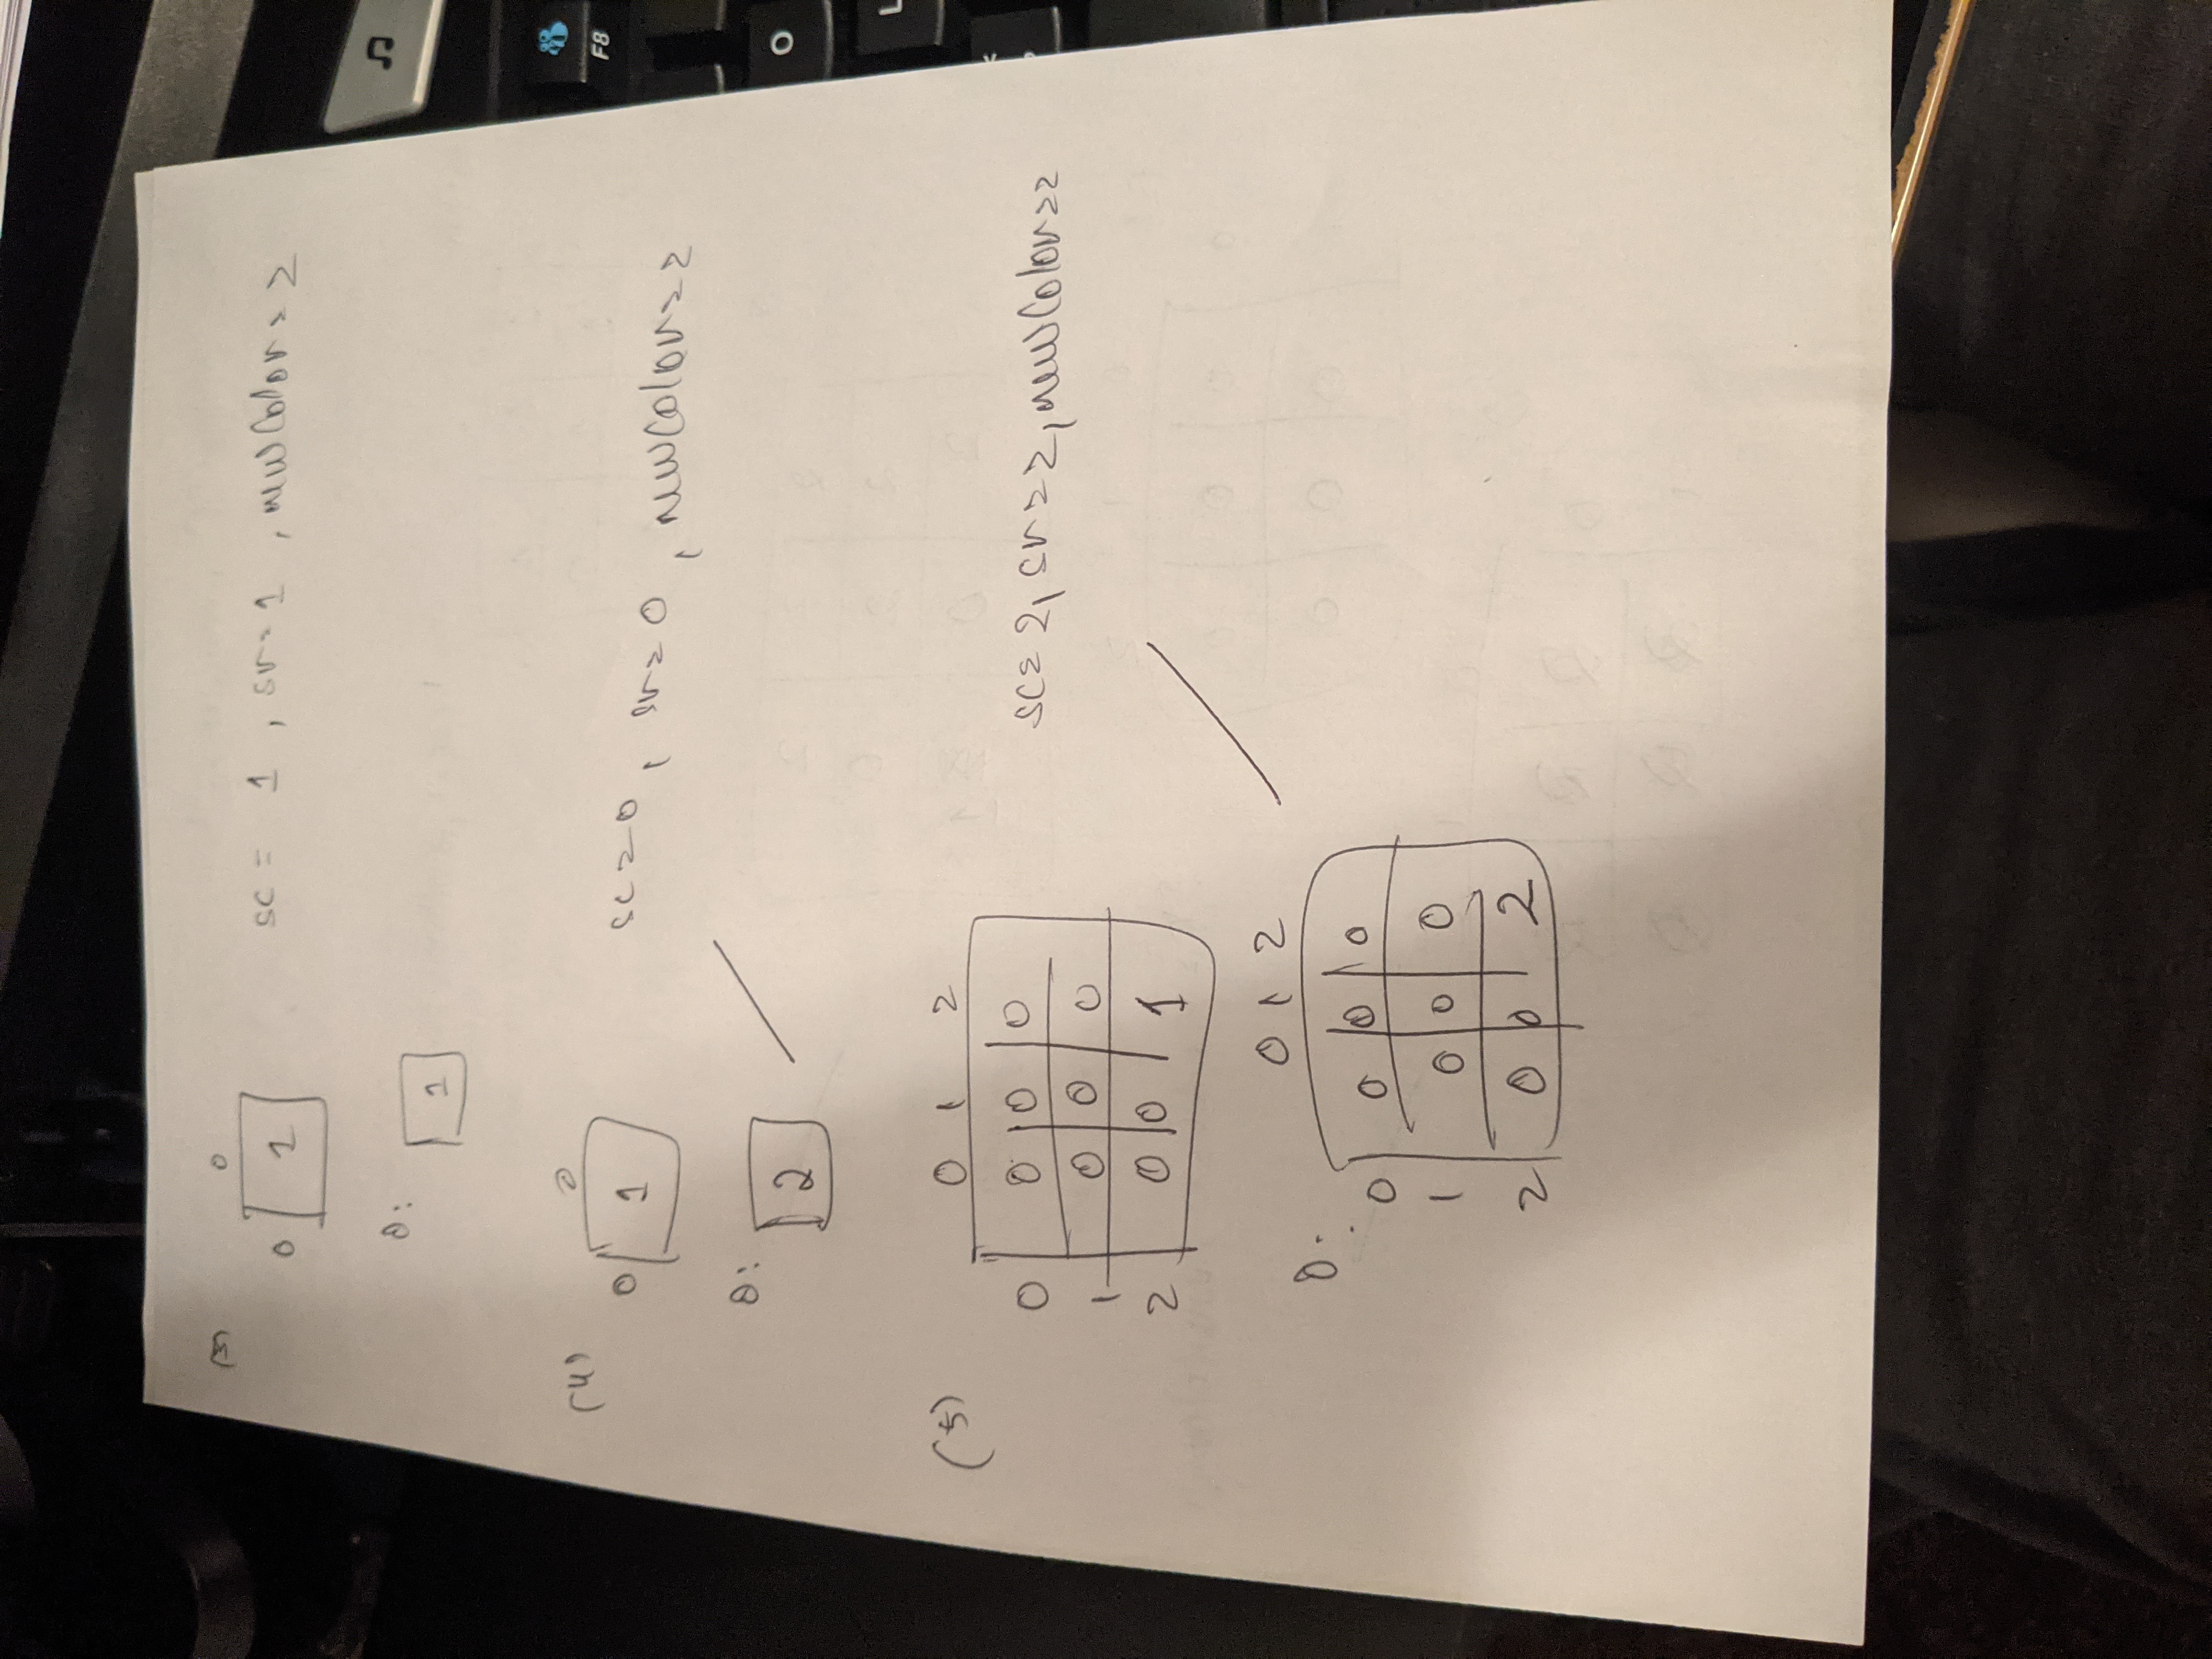 (3)
0
0 1
sc = 1 , sr = 1 , newColor = 2
O:
1
(4)
0
0 1
sc = 0 , sr = 0 , newColor = 2
O:
2
(5)
0 1 2
0 0 0 0
1 0 0 0
2 0 0 1
sc = 2, sr = 2, newColor = 2
O:
0 1 2
0 0 0 0
1 0 0 0
2 0 0 2
F8
O
L